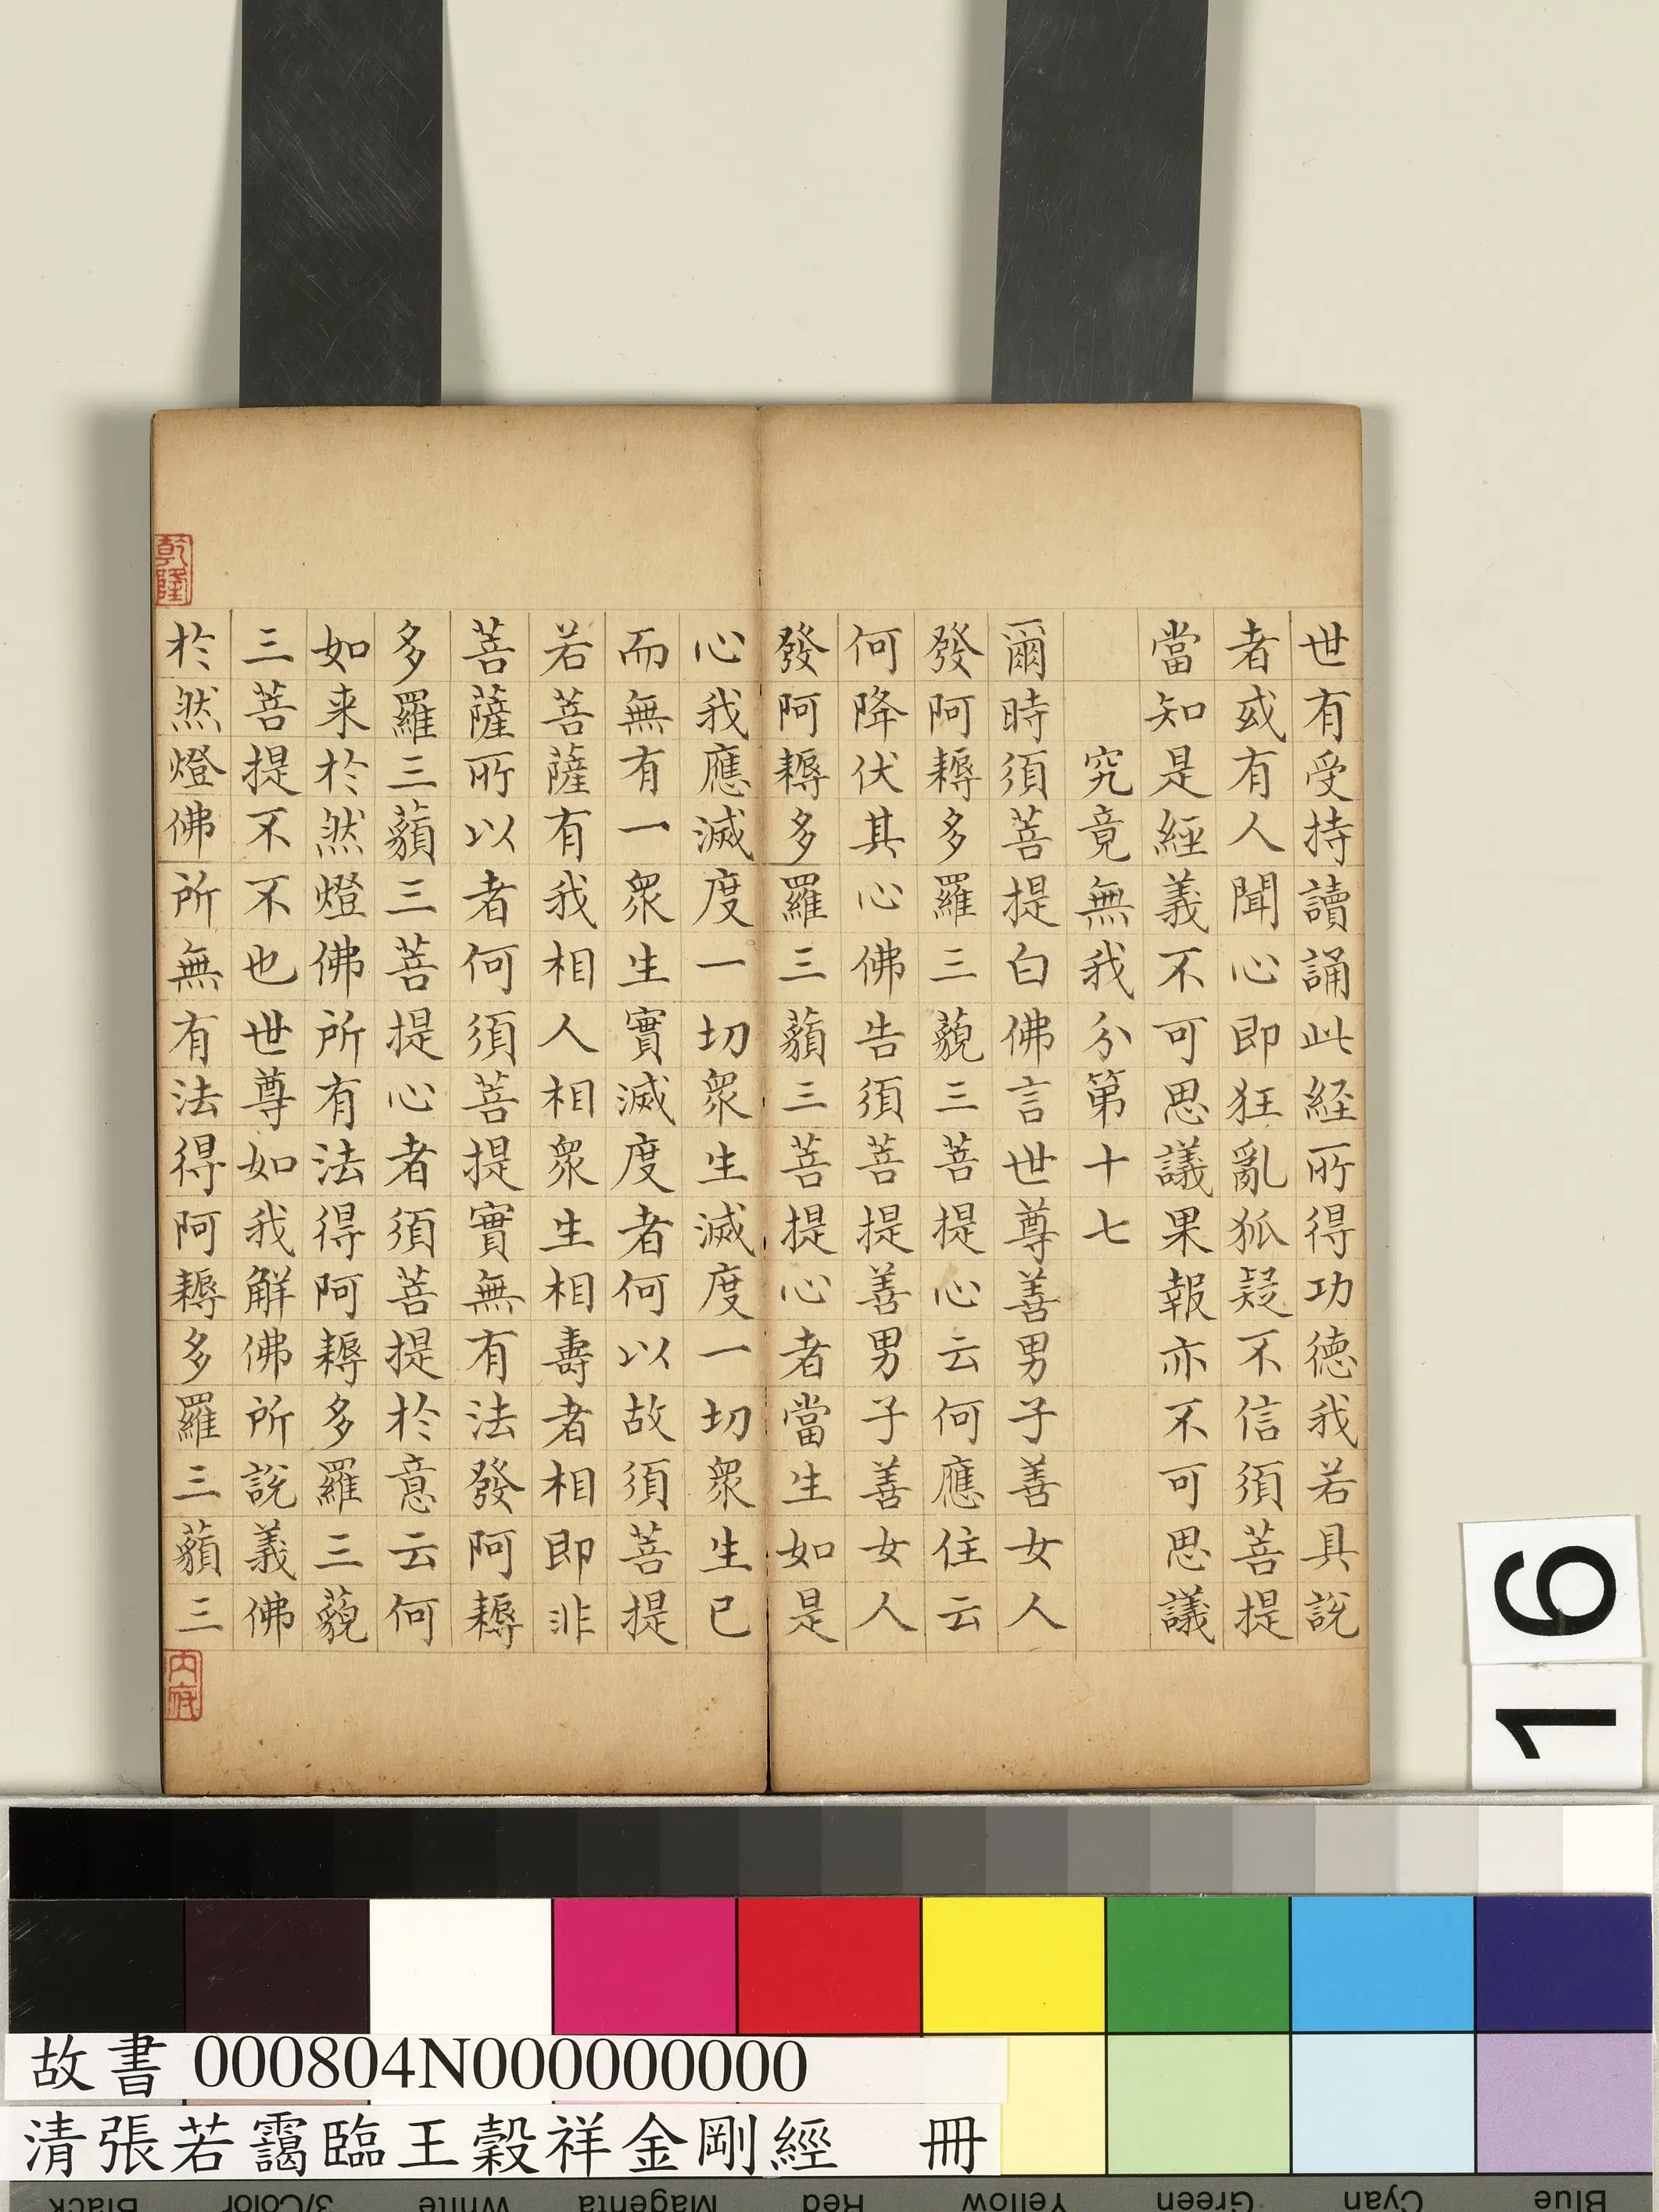 世有受持讀誦此経所得功德我若具説
者或有人聞心即狂亂狐疑不信須菩提
當知是經義不可思議果報亦不可思議
究竟無我分第十七
爾時須菩提白佛言世尊善男子善女人
發阿耨多羅三藐三菩提心云何應住云
何降伏其心佛告須菩提善男子善女人
發阿耨多羅三藐三菩提心者當生如是
心我應滅度一切衆生滅度一切衆生已
而無有一衆生實滅度者何以故須菩提
若菩薩有我相人相衆生相壽者相即非
菩薩所以者何須菩提實無有法發阿耨
多羅三藐三菩提心者須菩提於意云何
如来於然燈佛所有法得阿耨多羅三藐
三菩提不不也世尊如我解佛所説義佛
於然燈佛所無有法得阿耨多羅三藐三
乾隆
内府
16
故書 000804N000000000
清張若靄臨王穀祥金剛經 冊
Black 3/Color White Magenta Red Yellow Green Cyan Blue